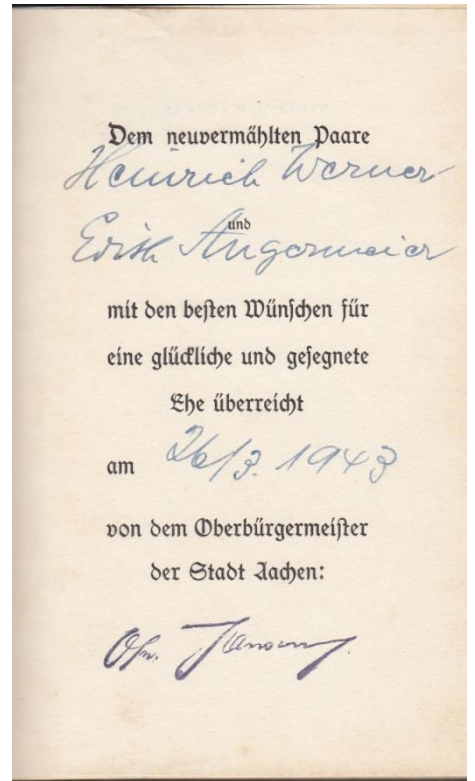 Dem neuvermählten Paare
Heinrich Werner
und
Edith Angermeier
mit den besten Wünschen für
eine glückliche und gesegnete
Ehe überreicht
am 26/3. 1943
von dem Oberbürgermeister
der Stadt Aachen:
Jansen